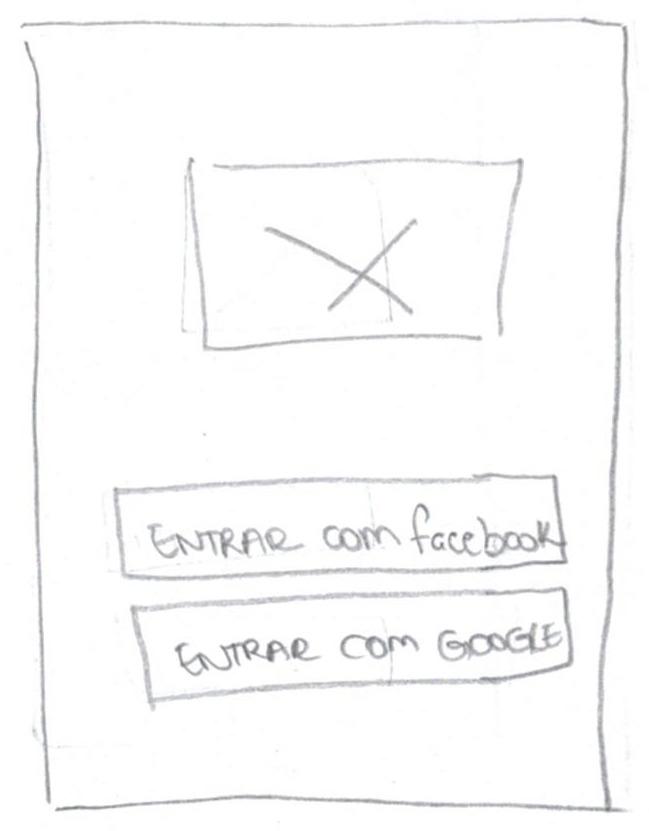 ENTRAR com facebook
ENTRAR com GOOGLE